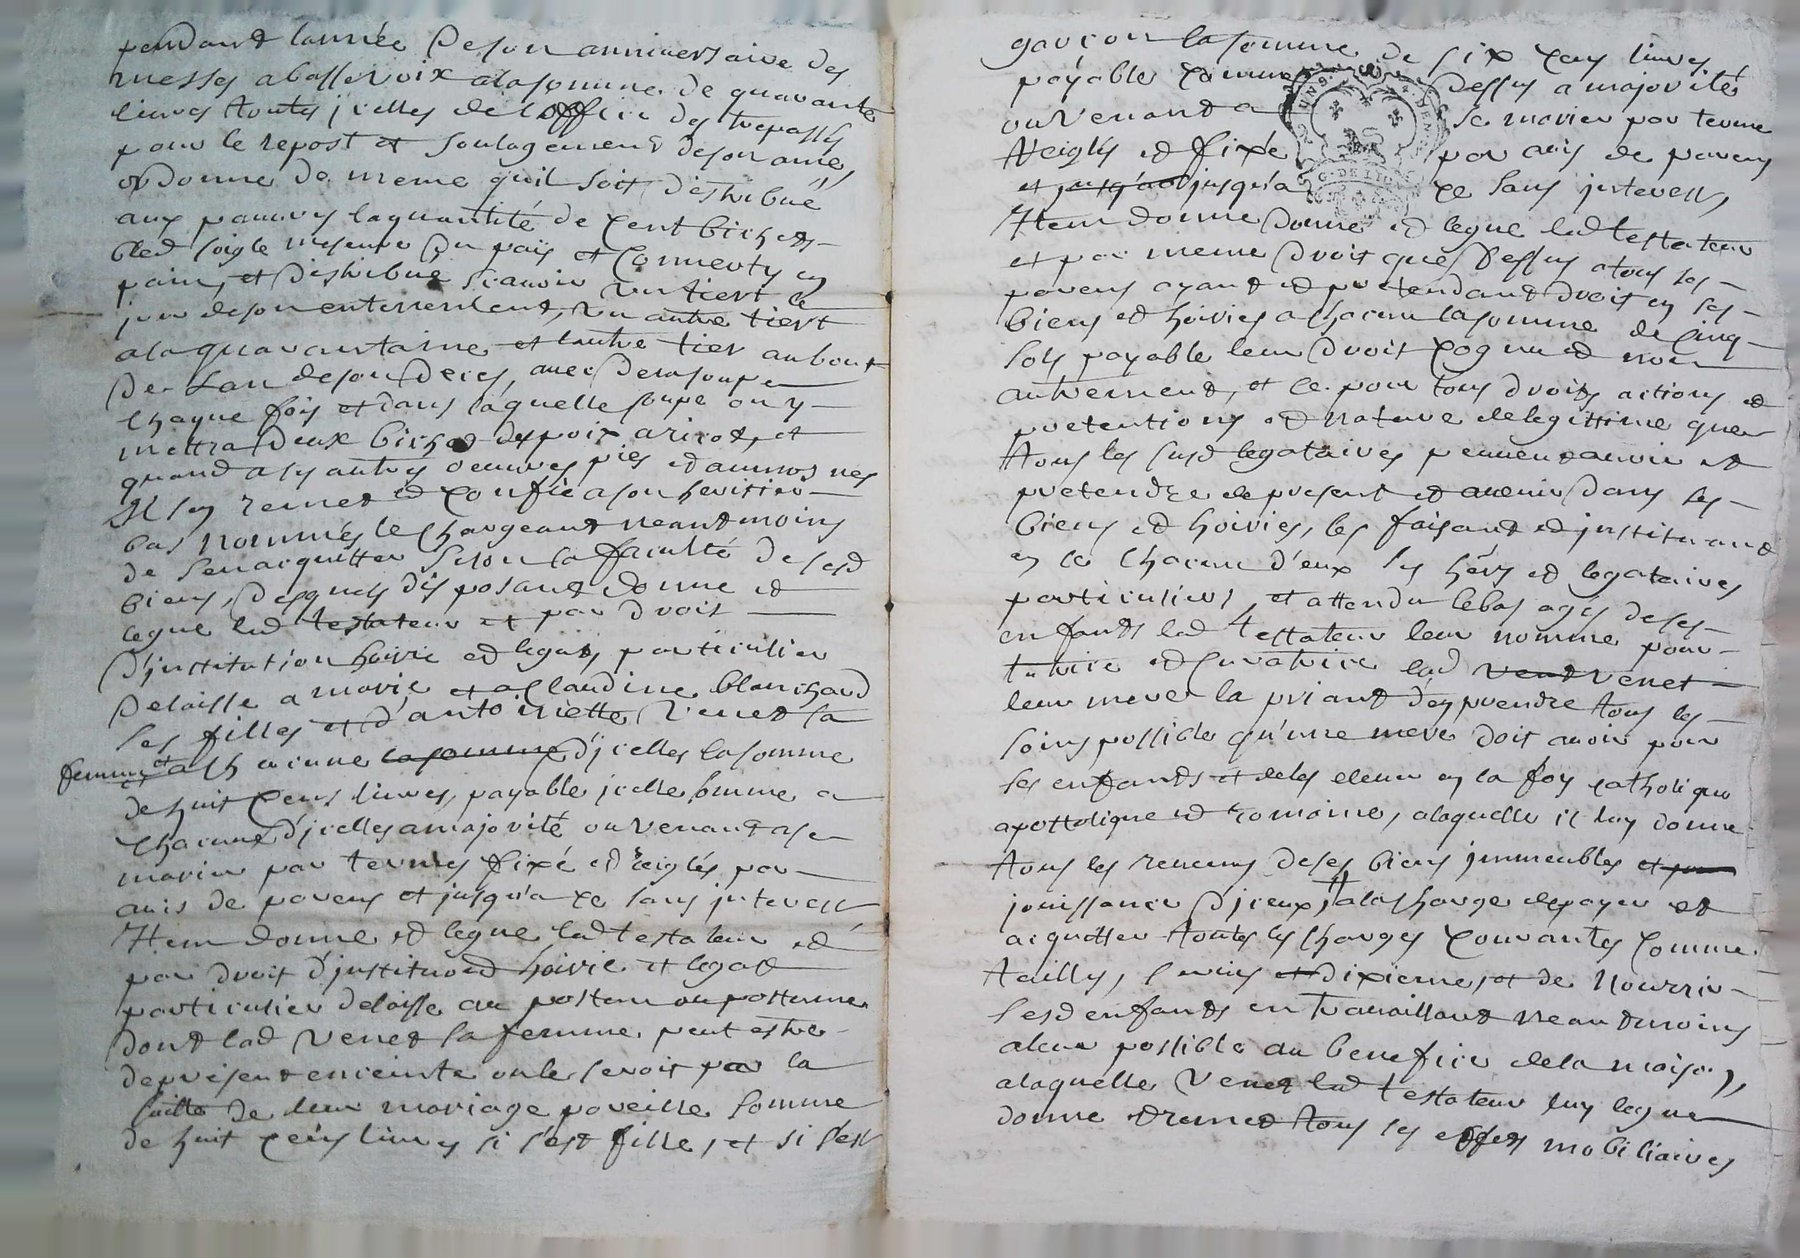 pendant lannée de son anniversaire des
messes a basse voix a la somme de quarante
livres toutes jcelles de loffice des trepassés
pour le repost et soulagement de son ame,
ordonne de meme quil soit distribué
aux pauvres la quantité de cent bichets
bled soigle mesure du païs et convertis en
pain, et distribué scavoir un tiert le
jour de son enterrement, un autre tiert
a la quarantaine et lautre tier au bout
de lan de son deces, avec de la soupe
chaque fois et dans laquelle soupe on y
mettra deux bichets de poix aricot, et
quand a ses autres oeuvres pies et aumosnes
Il sen remet et confie a son heritier
bas nommés le chargeant neantmoins
de sen acquitter selon la faculté de sesd
biens, desquels disposant donne et
legue led testateur et par droit
d'institution hoirie et legats particulier
delaisse a marie et a Claudine blanchard
ses filles et d'antoinette Venet sa
femme et a chacune la somme d'jcelles la somme
de huit cens livres, payable jcelle somme a
chacune d'jcelles a majorité ou venant a se
marier par termes fixé et reiglés par
avis de parens et jusqu'a ce sans interest
Item donne et legue led testateur et
par droit d'institu°n et hoirie et legat
particulier delaisse au postum ou postume
dont lad Venet sa femme peut estre
de present enceinte ou le seroit par la
suitte de leur mariage pareille somme
de huit cens livres si s'est fille, et si s'est
garçon la somme de six cens livres
payable comme dessus a majorité
ou venant a se marier par terme
Reiglés et fixé par avis de parens
et jusqu'a ce jusqu'a ce sans interest,
Item donne donne et legue led testateur
et par meme droit que dessus a tous ses
parens ayant et pretendant droit en ses
biens et hoiries a chacun la somme de cinq
sols payable leur droit cognu et non
autrement, et ce pour tous droits actions et
pretentions et nature de legittime que
tous les susd legataires peuvent avoir et
pretendre de present et avenir dans ses
biens et hoiries, les faisant et instituant
en ce chacun d'eux ses hérs et legataires
particuliers, et attendu le bas ages de ses
enfants led testateur leur nomme pour
tutrice et curatrice lad Venet
leur mere la priant d'en prendre tous les
soins possible qu'une mere doit avoir pour
ses enfants et de les elever en la foy catholique
apostolique et romaine, a laquelle il luy donne
tous les revenus de ses biens immeubles
jouissance d'jceux, a la charge de payer et
acquitter toutes les charges courantes comme
tailles, servis et dixieme, et de nourrir
sesd enfants en travaillant neantmoins
a leur possible au benefice de la maison,
a laquelle Venet led testateur luy legue
donne et remet tous ses effets mobiliaires